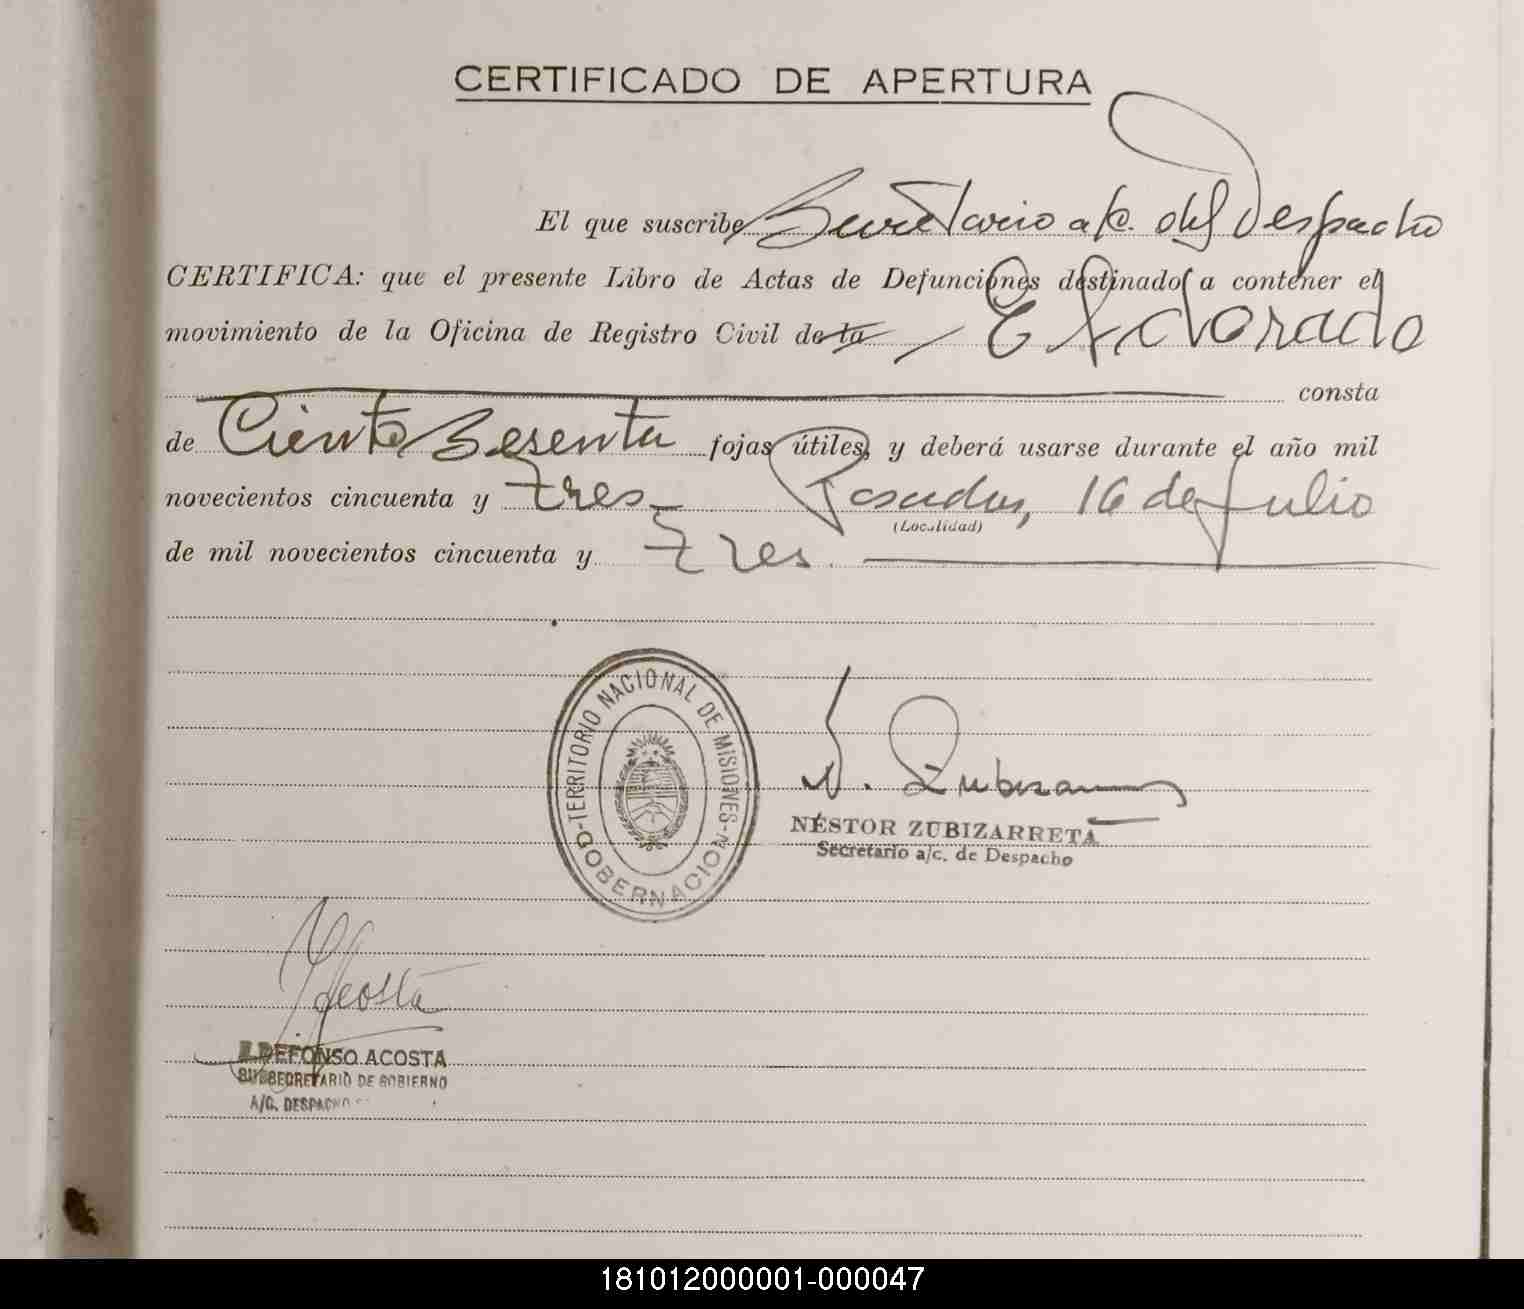 CERTIFICADO DE APERTURA
El que suscribe Secretario a/c. del Despacho
CERTIFICA: que el presente Libro de Actas de Defunciones destinado a contener el
movimiento de la Oficina de Registro Civil de la Eldorado
consta
de Ciento Sesenta fojas útiles, y deberá usarse durante el año mil
novecientos cincuenta y tres. Posadas, 16 de Julio
(Localidad)
de mil novecientos cincuenta y tres.
TERRITORIO NACIONAL DE MISIONES
GOBERNACION
N. Zubizarreta
NÉSTOR ZUBIZARRETA
Secretario a/c. de Despacho
Acosta
ILDEFONSO ACOSTA
SUBSECRETARIO DE GOBIERNO
A/C. DESPACHO
181012000001-000047